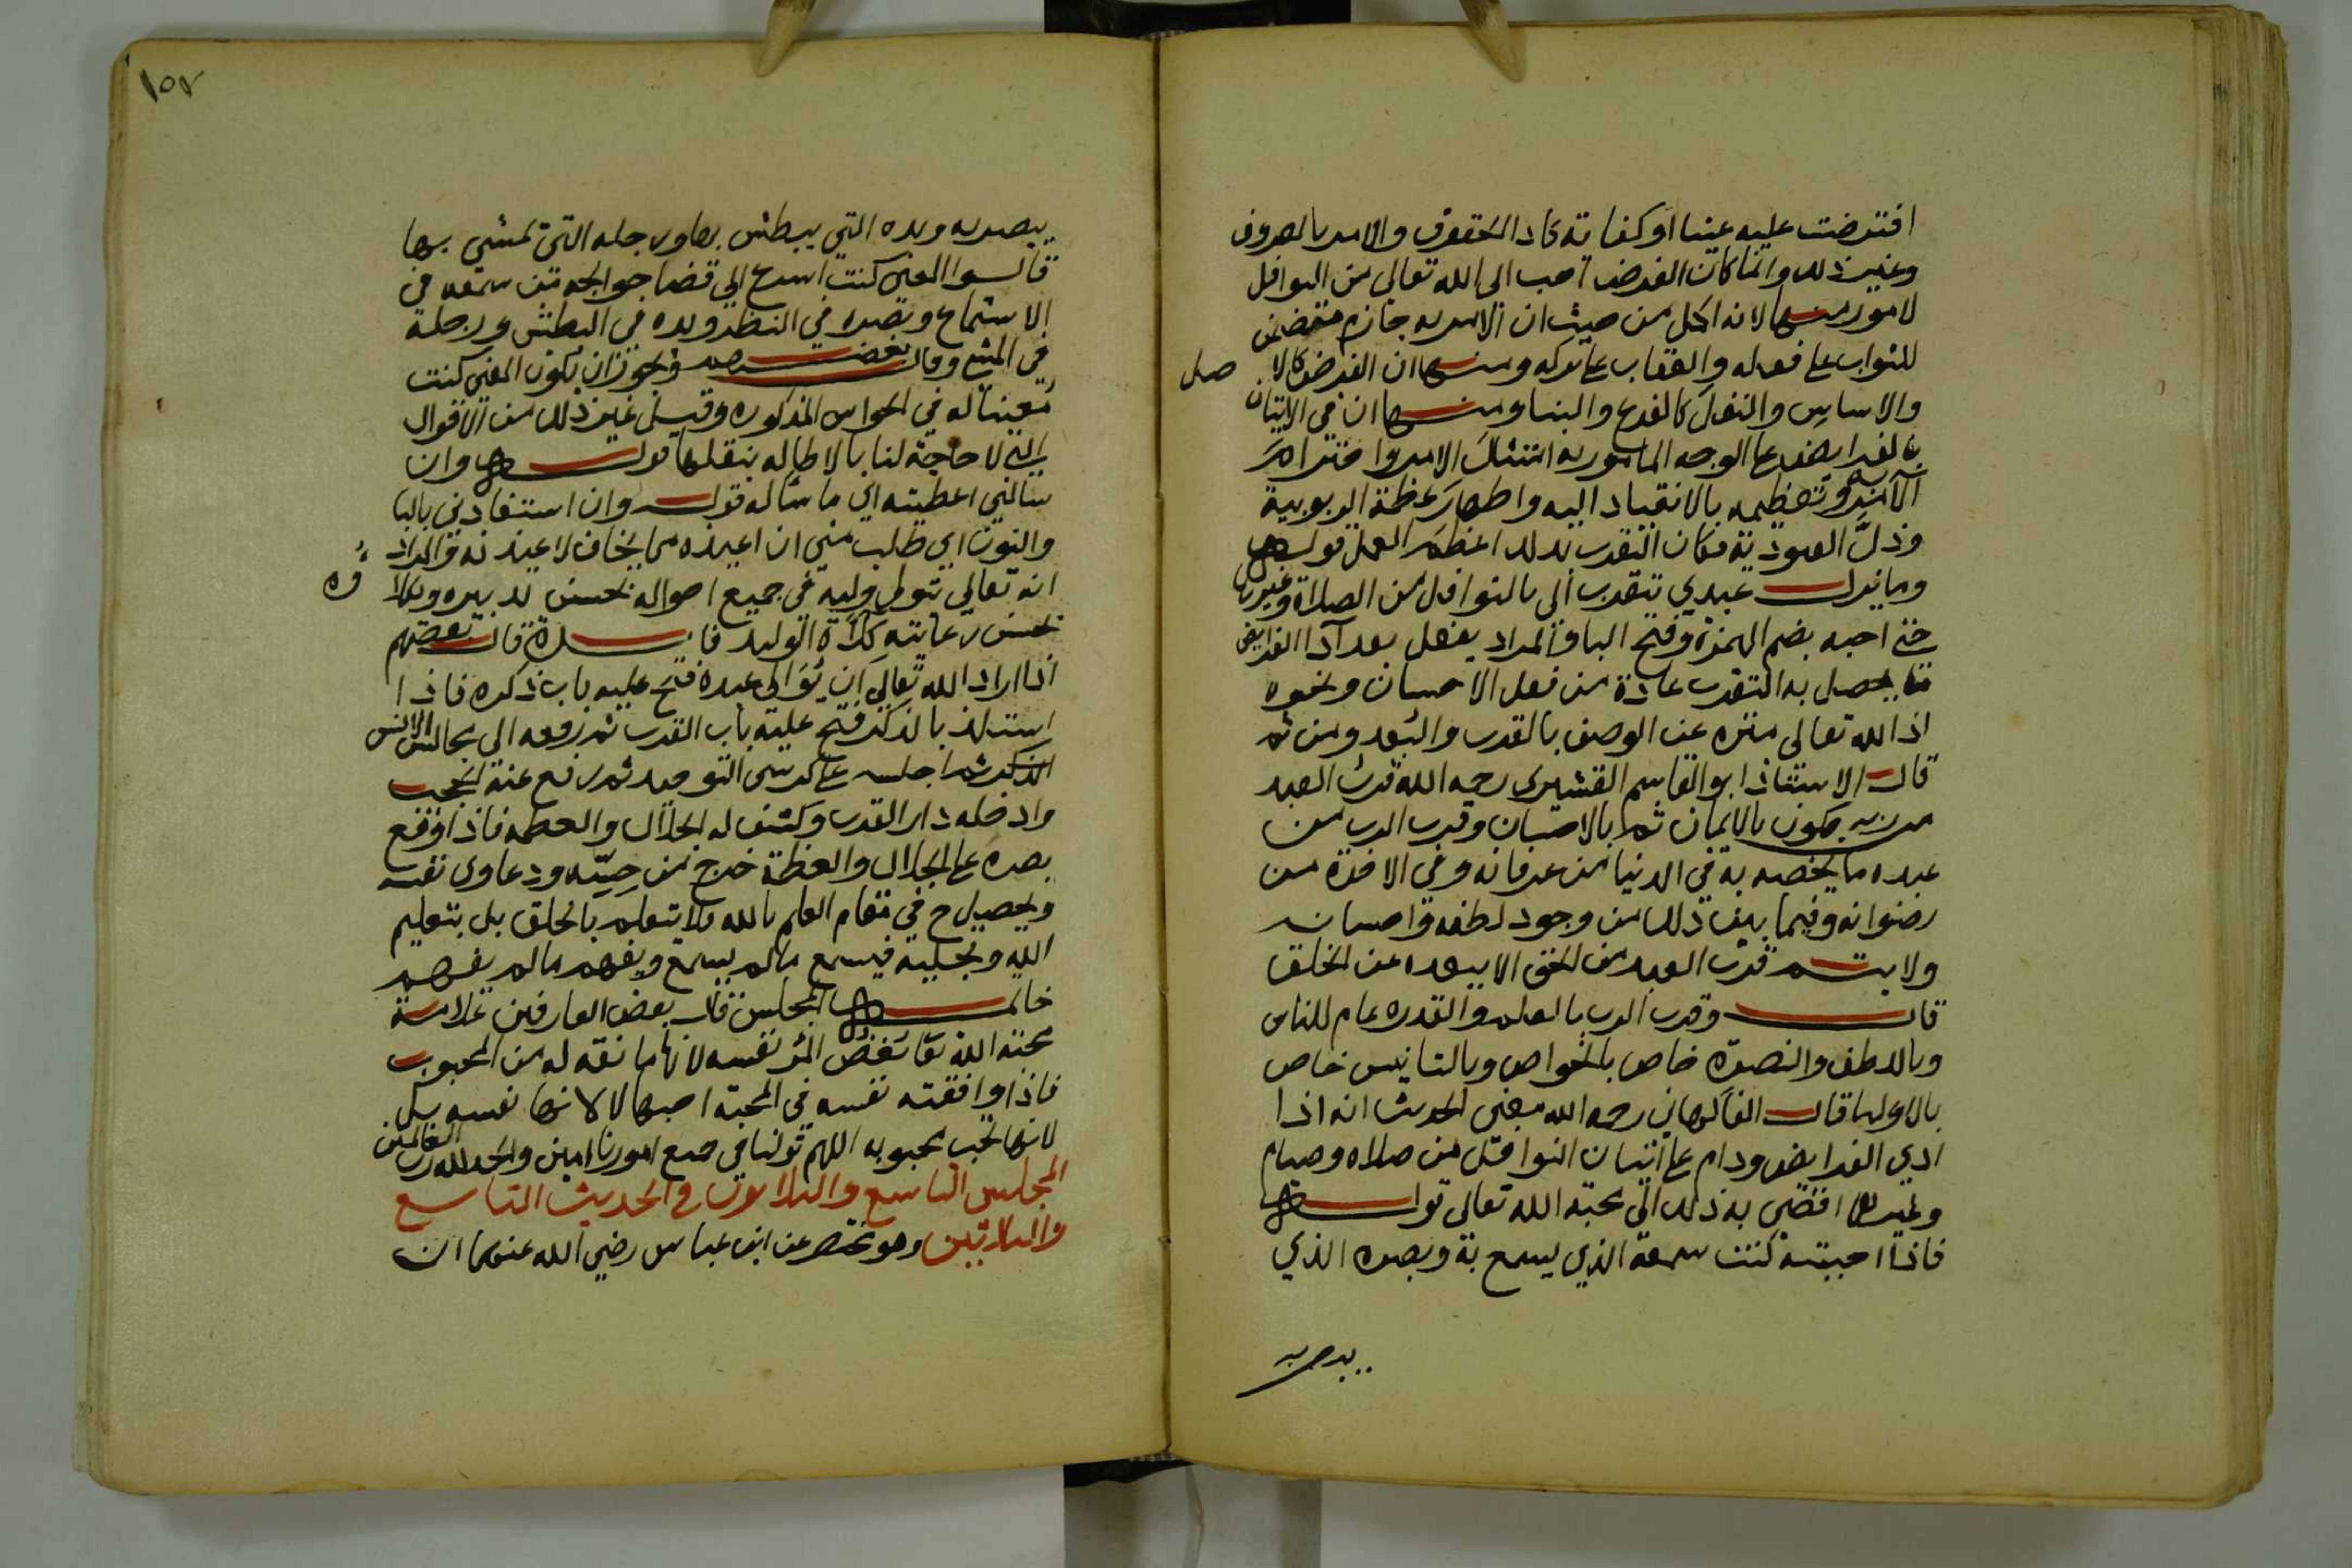 افترضت عليه عينا او كفاية كاد الحقوق والامر بالمعروف
وغير ذلك وانما كان الفرض احب الى الله تعالى من النوافل
لامور منها لانه اكمل من حيث ان الامر به جازم متضمن
للثواب على فعله والعقاب على تركه ومنها ان الفرض كالا صل
والاساس والنفل كالفرع والبنا ومنها ان في الاتيان
بالفرايض على الوجه المامور به امتثال الامر واحترام
الآمر وتعظيمه بالانقياد اليه واظهار عظمة الربوبية
وذل العبودية فكان التقرب بذلك اعظم العمل قوله
وما يزال عبدي يتقرب الى بالنوافل من الصلاة وغيرها
حتى احبه بضم الهمزة وفتح البا والمراد يفعل بعد آدا الفرايض
ما يحصل به التقرب عادة من فعل الاحسان ونحوه
اذ الله تعالى منزه عن الوصف بالقرب والبعد ومن ثم
قال الاستاذ ابو القاسم القشيرى رحمه الله قرب العبد
من ربه يكون بالايمان ثم بالاحسان وقرب الرب من
عبده ما يخصه به في الدنيا من عرفانه وفى الاخرة من
رضوانه وفيما بين ذلك من وجود لطفه واحسانه
ولا يتم قرب العبد من الحق الا ببعده عن الخلق
قال وقرب الرب بالعلم والقدره عام للناس
وباللطف والنصرة خاص بالخواص وبالتانيس خاص
بالاوليا قال الفاكهاني رحمه الله معنى الحديث انه اذا
ادي الفرايض ودام على اتيان النوافل من صلاه وصيام
وغيرها افضى به ذلك الى محبة الله تعالى قوله
فاذا احببته كنت سمعه الذي يسمع به وبصره الذي
يبصر به
١٥٢
يبصر به ويده التي يبطش بها ورجله التى تمشي بها
قالوا المعنى كنت اسرع الى قضا حوايجه من سمعه في
الاستماع وبصره في النظر ويده في البطش ورجله
في المشي وقال بعضهم ويجوز ان يكون المعنى كنت
معينا له في الحواس المذكوره وقيل غير ذلك من الاقوال
التي لا حاجة لنا بالاطاله بنقلها قوله وان
سالني اعطيته اي ما ساله قوله وان استعاذني بالبا
والنون اي طلب مني ان اعيذه مما يخاف لاعيذنه والمراد
انه تعالى يتولى وليه في جميع احواله بحسن تدبيره ويكلا ؤه
بحسن رعايته كلاءة الوليد فايدة قال بعضهم
اذا اراد الله تعالى ان يوالى عبده فتح عليه باب ذكره فاذا
استلذ بالذكر فتح عليه باب القرب ثم رفعه الى مجالس الانس
ثم اجلسه على كرسى التوحيد ثم رفع عنه الحجب
وادخله دار القرب وكشف له الجلال والعظمه فاذا وقع
بصره على الجلال والعظمة خرج من حسه ودعاوى نفسه
ويحصل ح في مقام العلم بالله فلا يتعلم بالخلق بل بتعليم
الله وتجليه فيسمع مالم يسمع ويفهم مالم يفهم
خاتمة المجلس قال بعض العارفين علامة
محبة الله تعا بغض المرء نفسه لانها مانعة له من المحبوب
فاذا وافقته نفسه في المحبة احبها لا لانها نفسه بل
لانها تحب محبوبه اللهم تولنا في جميع امورنا امين والحمد لله رب العالمين
المجلس التاسع والثلاثون في الحديث التاسع
والثلاثين وهو مختصر عن ابن عباس رضي الله عنهما ان